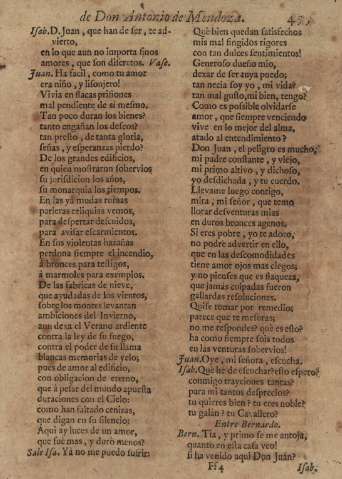 de Don Antonio de Mendoza.
Isab. D. Juan, que han de ser, te ad-
vierto,
en lo que aun no importa finos
amores, que son discretos. Vase.
Juan. Ha facil, como tu amor
era niño, y lisonjero!
Vivia en flacas prisiones
mal pendiente de si mesmo.
Tan poco duran los bienes?
tanto engañan los deseos?
tan presto, de tanta gloria,
señas, y esperanzas pierdo?
De los grandes edificios,
en quien mostraron sobervios
su jurisdicion los años,
su monarquia los tiempos.
En las ya mudas ruinas
parleras reliquias vemos,
para despertar descuidos,
para avisar escarmientos.
En sus violentas hazañas
perdona siempre el incendio,
á bronces para testigos,
á marmoles para exemplos.
De las fabricas de nieve,
que ayudadas de los vientos,
sobre los montes levantan
ambiciones del Invierno,
aun desta el Verano ardiente
contra la ley de su fuego,
contra el poder de su llama
blancas memorias de yelo;
pues de amor al edificio,
con obligacion de eterno,
que á pesar del mundo apuesta
duraciones con el Cielo:
como han faltado cenizas,
que digan en su silencio:
Aqui ay luces de un amor,
que fue mas, y duró menos?
Sale Isa. Yá no me puedo sufrir:
Què bien quedan satisfechos
mis mal fingidos rigores
con tan dulces sentimientos!
Generoso dueño mio,
dexar de ser tuya puedo;
tan necia soy yo, mi vida?
tan mal gusto, mi bien, tengo?
Como es posible olvidarse
amor, que siempre venciendo
vive en lo mejor del alma,
atado al entendimiento?
Don Juan, el peligro es mucho,
mi padre constante, y viejo,
mi primo altivo, y dichoso,
yo desdichada, y tu cuerdo.
Llevame luego contigo,
mira, mi señor, que temo
llorar desventuras mias
en duros bronces agenos.
Si eres pobre, yo te adoro,
no podré advertir en ello,
que en las descomodidades
tiene amor ojos mas ciegos;
y no pienses que es flaqueza,
que jamás culpadas fueron
gallardas resoluciones.
Quise tomar por remedio;
parece que te mesuras;
no me respondes? què es esto?
ha como siempre sois todos
en las venturas sobervios!
Juan. Oye, mi señora, escucha.
Isab. Què he de escuchar? esto espero?
conmigo trayciones tantas?
para mi tantos desprecios?
tu quieres bien? tu eres noble?
tu galàn? tu Cavallero?
Entre Bernardo.
Bern. Tia, y primo se me antoja,
quanto en esta quadra veo!
si ha venido aqui Don Juan?
Ff 4
Isab.